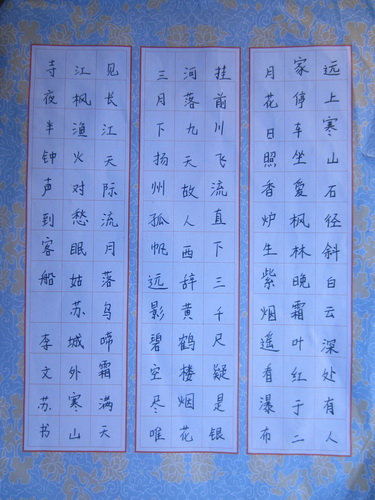 远上寒山石径斜白云深处有人
家停车坐爱枫林晚霜叶红于二
月花日照香炉生紫烟遥看瀑布
挂前川飞流直下三千尺疑是银
河落九天故人西辞黄鹤楼烟花
三月下扬州孤帆远影碧空尽唯
见长江天际流月落乌啼霜满天
江枫渔火对愁眠姑苏城外寒山
寺夜半钟声到客船 李文苏书